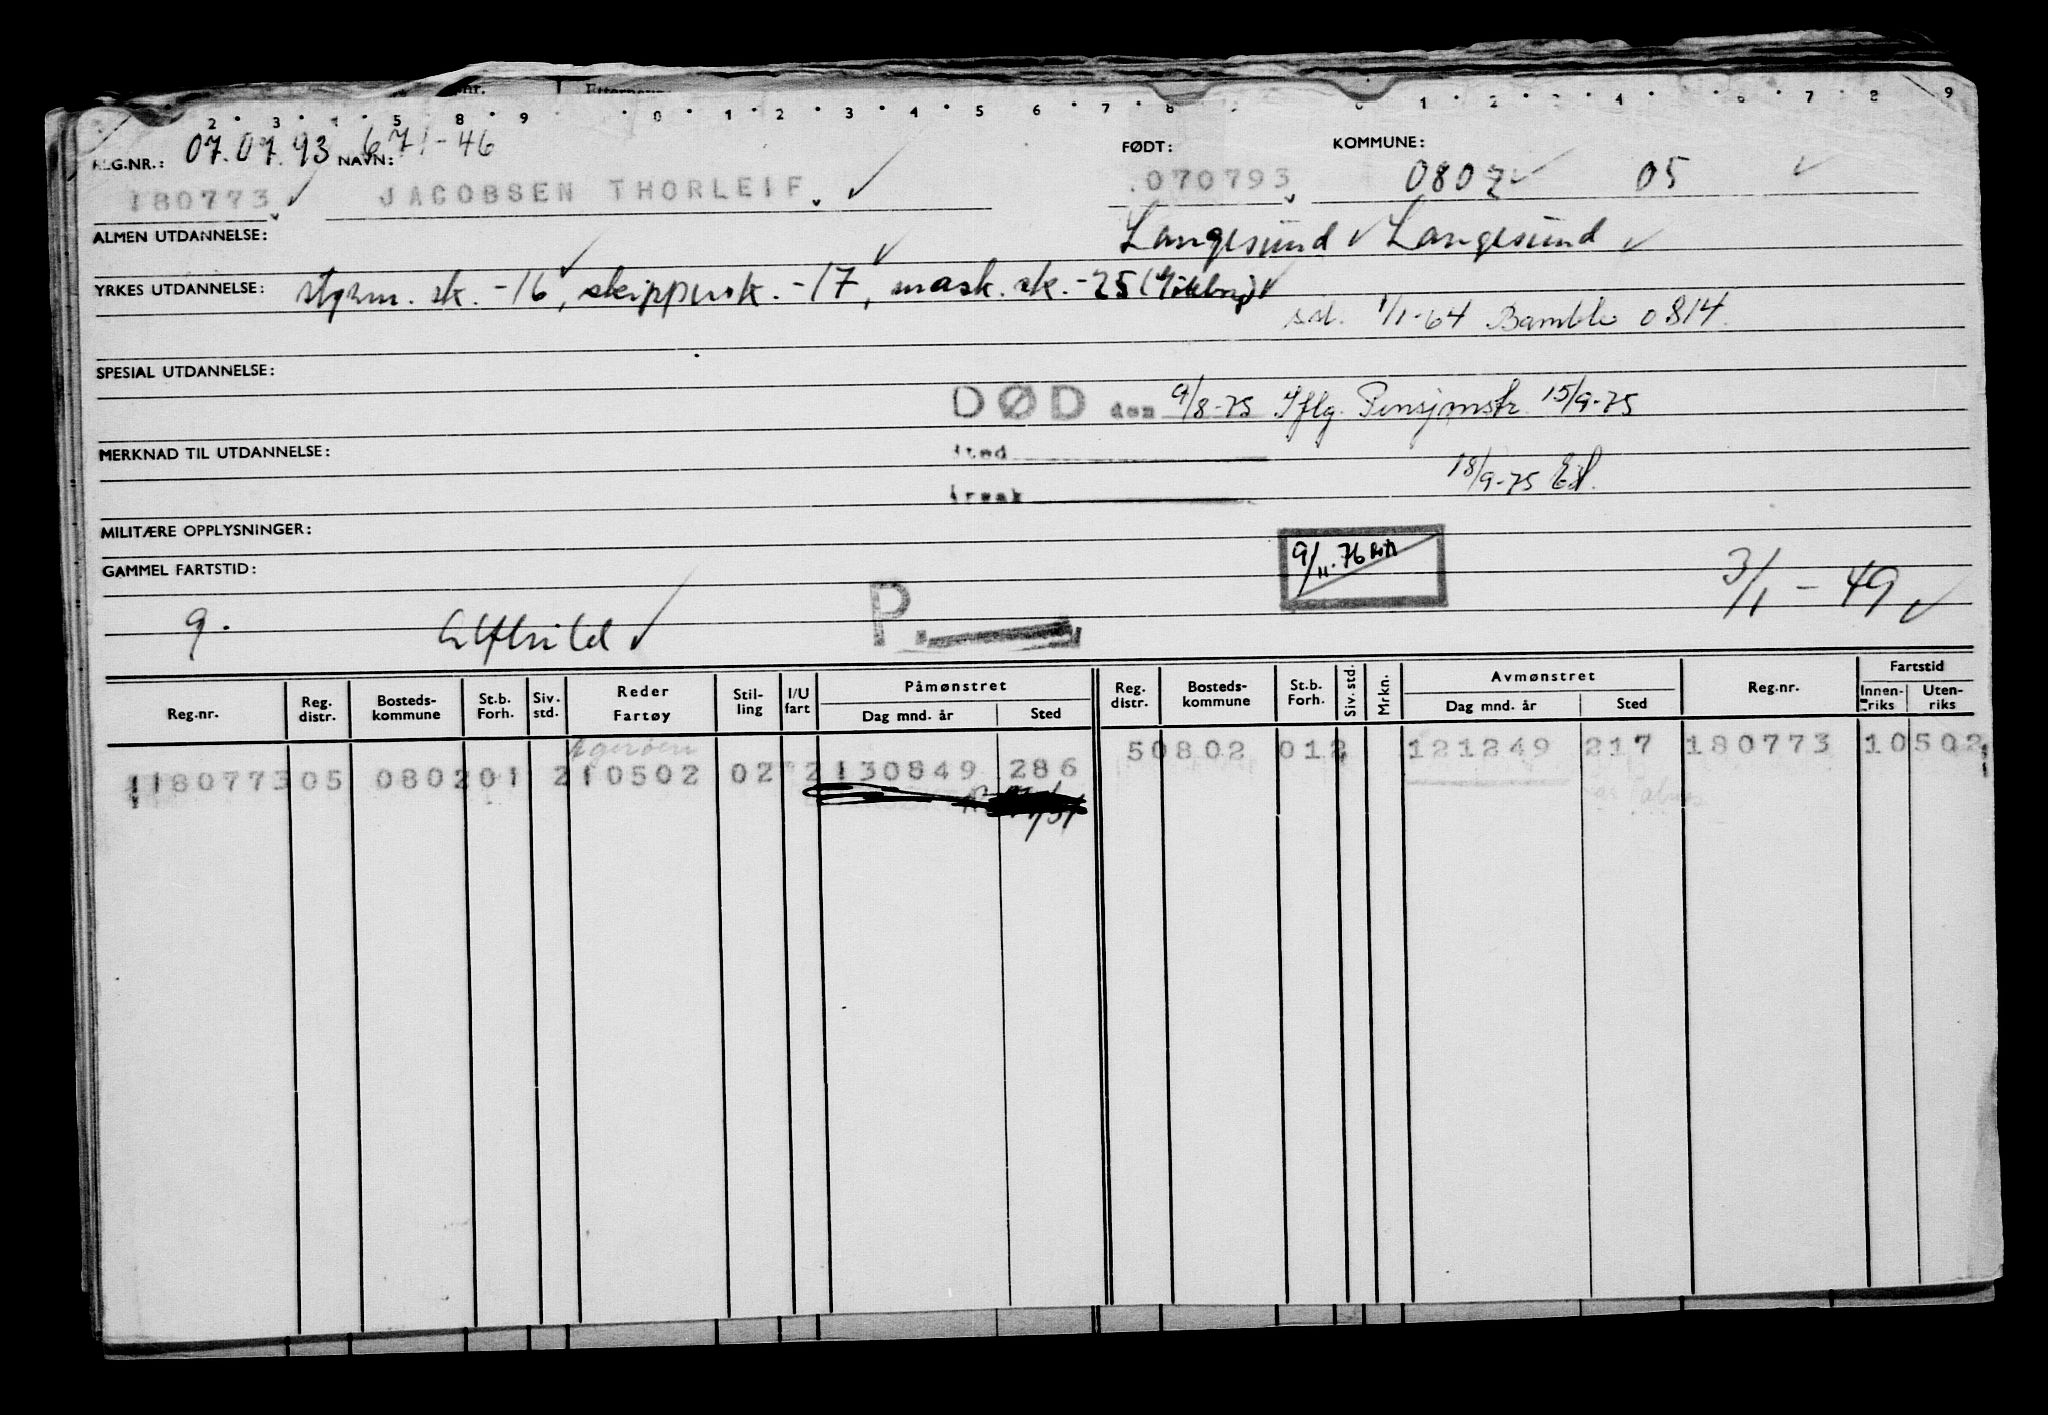 2 3 4 5 8 9 0 1 2 3 4 5 6 7 8 0 1 2 3 4 6 7 8 9
REG.NR.: 07.07.93 NAVN: 671-46 FØDT: KOMMUNE:
180773 JACOBSEN THORLEIF 070793 0802 05
ALMEN UTDANNELSE: Langesund Langesund
YRKES UTDANNELSE: styrm. sk. -16, skippersk. -17, mask. sk. -25
1/1-64 Bamble 0814.
SPESIAL UTDANNELSE:
DØD den 9/8-75 Iflg. Pensjonstr. 15/9-75
MERKNAD TIL UTDANNELSE: sted
18/9-75
årsak
MILITÆRE OPPLYSNINGER:
9/11-76
GAMMEL FARTSTID:
3/1-49
9. Alfhild P.
Reg.nr. Reg. distr. Bosteds-kommune St.b. Forh. Siv. std. Reder Fartøy Stil-ling I/U fart Påmønstret Dag mnd. år Sted Reg. distr. Bosteds-kommune St.b. Forh. Siv. std. Mrkn. Avmønstret Dag mnd. år Sted Reg.nr. Fartstid Innen-riks Uten-riks
50802 012 121249 217 180773 10502
1180773 05 0802 01 2 10502 02 2 130849 286